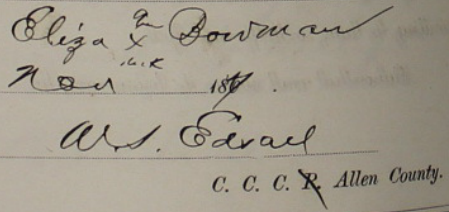 Eliza X Bowman
Nov 187
W. S. Edsall
C. C. C. P. Allen County.